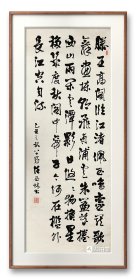 滕王高閣臨江渚佩玉鳴鸞罷歌
舞畫棟朝飛南浦雲朱簾暮捲
西山雨閒雲潭影日悠悠物換星
移幾度秋閣中帝子今何在檻外
長江空自流